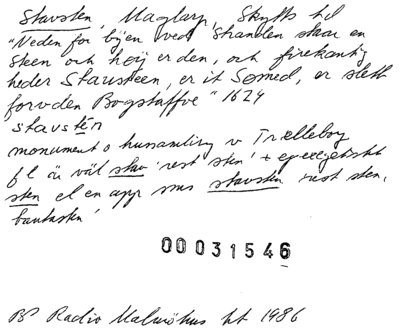 Stavsten, Maglarp, Skytts hd
"Neden for byen ved stranden staar en
steen och høy er den, och firekantig
heder Stausteen, er it Sømed, er slett
foruden Bogstaffve" 1624
stavstén
monument o hussamling v Trelleborg
fl är väl stav 'rest sten' + epexegetiskt
sten el en app sms stavsten 'rest sten,
bautasten'
00031546
BP Radio Malmöhus ht 1986